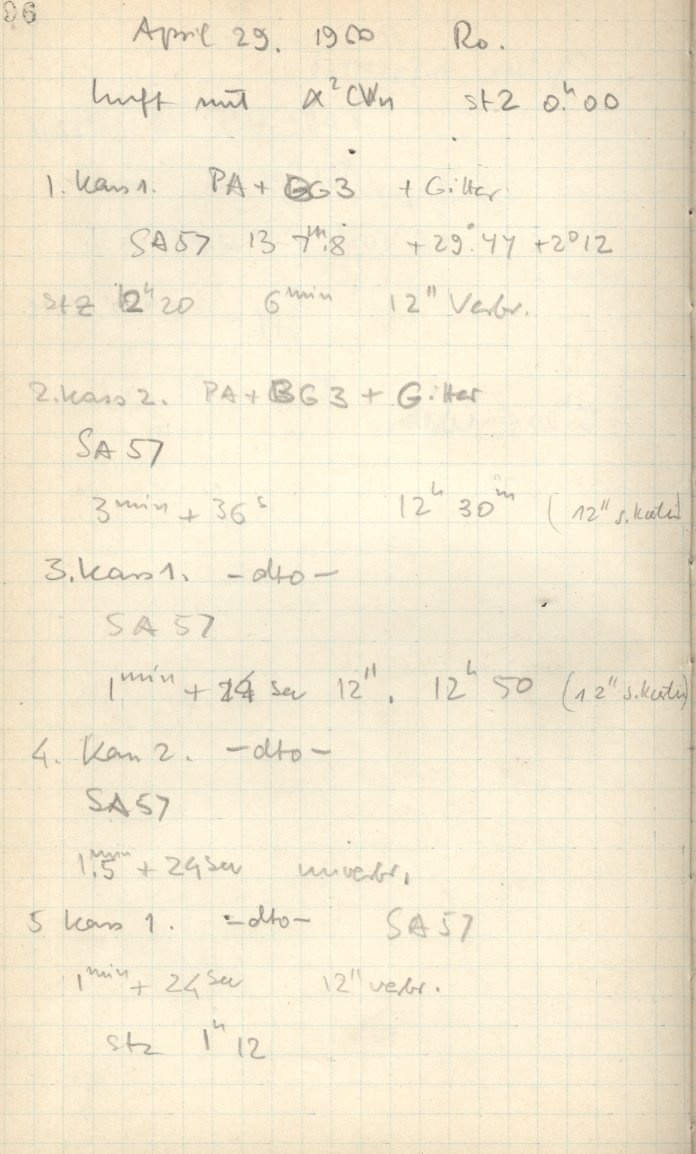 96
April 29. 1960 Ro.
mit α²CVn stz 0.ʰ00
1. Kass 1. PA + BG3 + Gitter
SA57 13 7ᵐ.8 +29°.44 +2°12
stz 12ʰ20 6ᵐⁱⁿ 12" Verbr.
2. Kass 2. PA + BG3 + Gitter
SA57
3ᵐⁱⁿ + 36ˢ 12ʰ 30ᵐ (12"
3. Kass 1. -dto-
SA 57
1ᵐⁱⁿ + 24 sec 12". 12ʰ 50 (12"
4. Kass 2. -dto-
SA57
1.5ᵐⁱⁿ + 24 sec unverbr.
5 Kass 1. -dto- SA57
1ᵐⁱⁿ + 24 sec 12" verbr.
stz 1ʰ 12